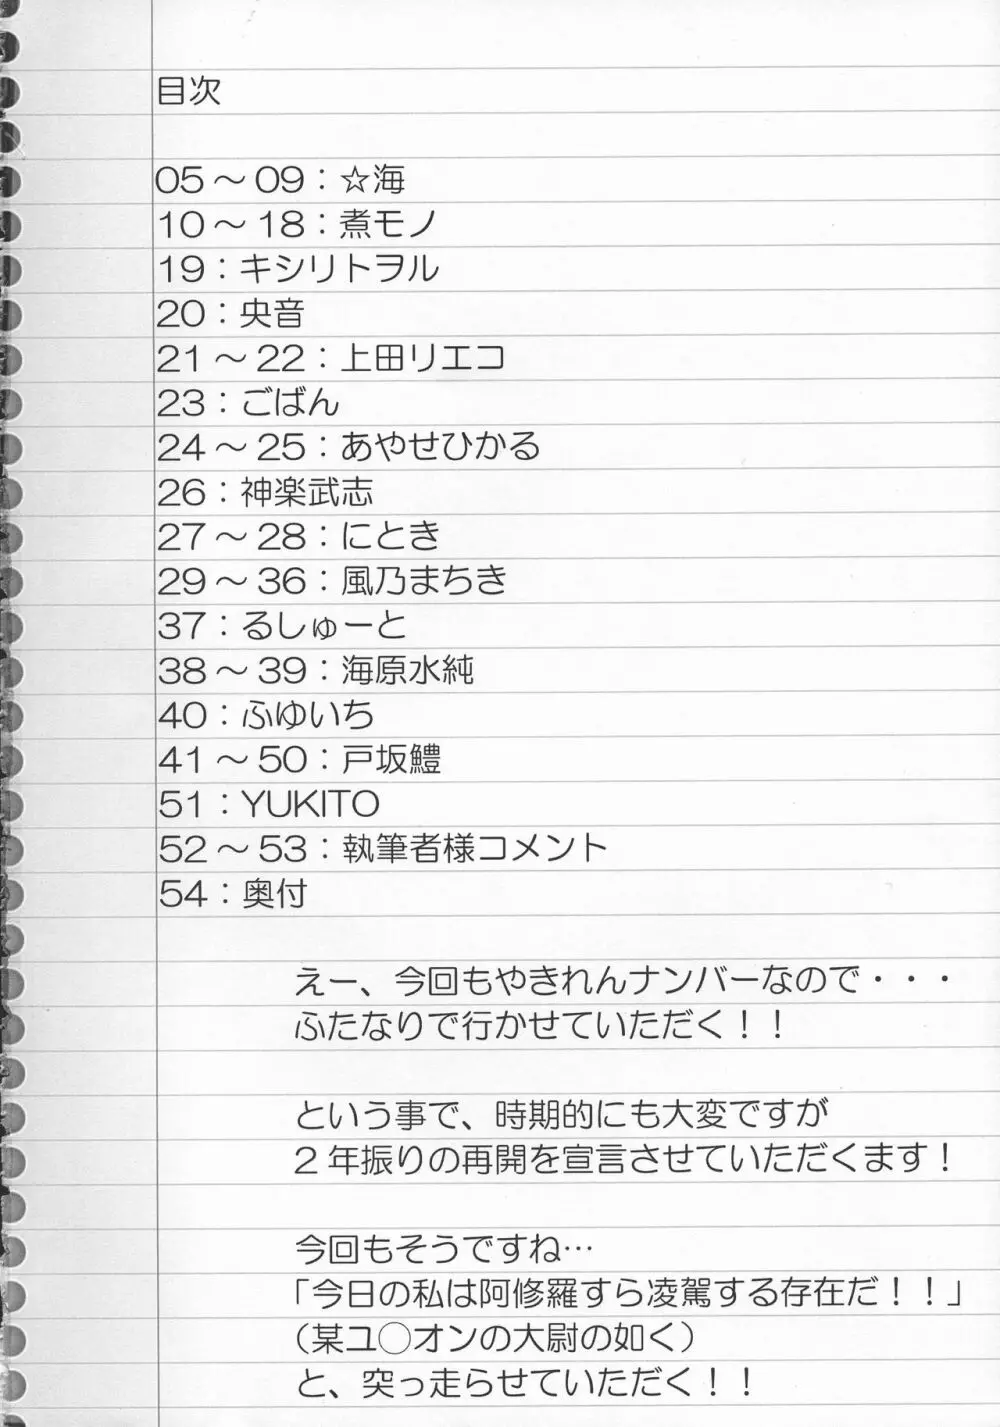 目次
05～09：☆海
10～18：煮モノ
19：キシリトヲル
20：央音
21～22：上田リエコ
23：ごばん
24～25：あやせひかる
26：神楽武志
27～28：にとき
29～36：風乃まちき
37：るしゅーと
38～39：海原水純
40：ふゆいち
41～50：戸坂鱧
51：YUKITO
52～53：執筆者様コメント
54：奥付
えー、今回もやきれんナンバーなので・・・
ふたなりで行かせていただく！！
という事で、時期的にも大変ですが
2年振りの再開を宣言させていただくます！
今回もそうですね…
「今日の私は阿修羅すら凌駕する存在だ！！」
（某ユ○オンの大尉の如く）
と、突っ走らせていただく！！